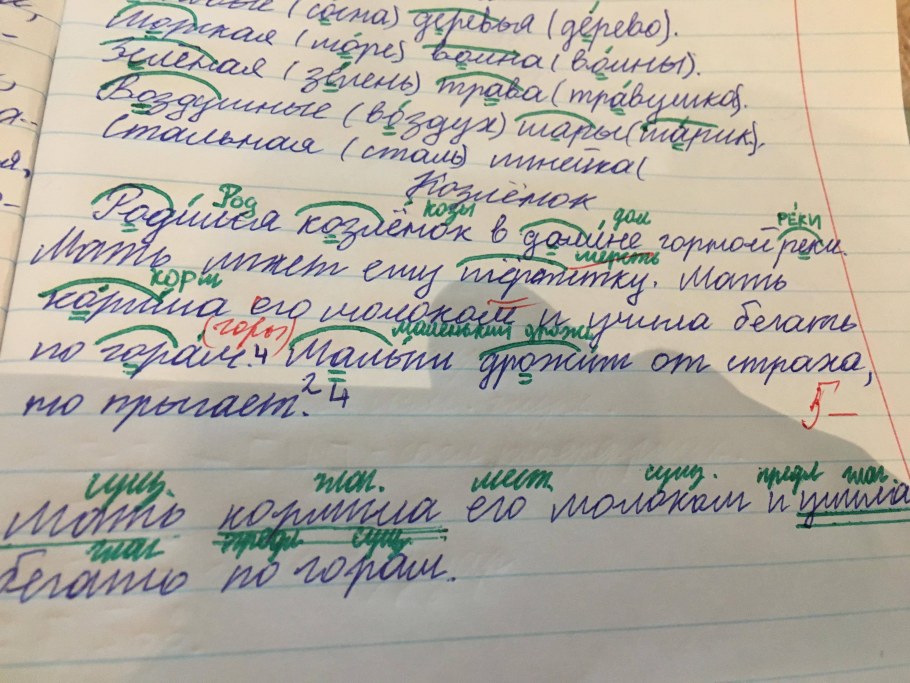 (сосна) деревья (дерево).
Морская (море) волна (волны).
Зелёная (зелень) трава (травушка).
Воздушные (воздух) шары (шарик).
Стальная (сталь) линейка (
Козлёнок
Род козы дол РЕ́КИ
Родился козлёнок в долине горной реки.
шерсть
Мать лижет ему шёрстку. Мать
КОРМ
кормила его молоком и учила бегать
(горы) маленький дрожь
по горам. 4 Малыш дрожит от страха,
то прыгает. 2 4
5-
сущ. глаг. мест. сущ. предл глаг.
Мать кормила его молоком и учила
глаг предл сущ.
бегать по горам.